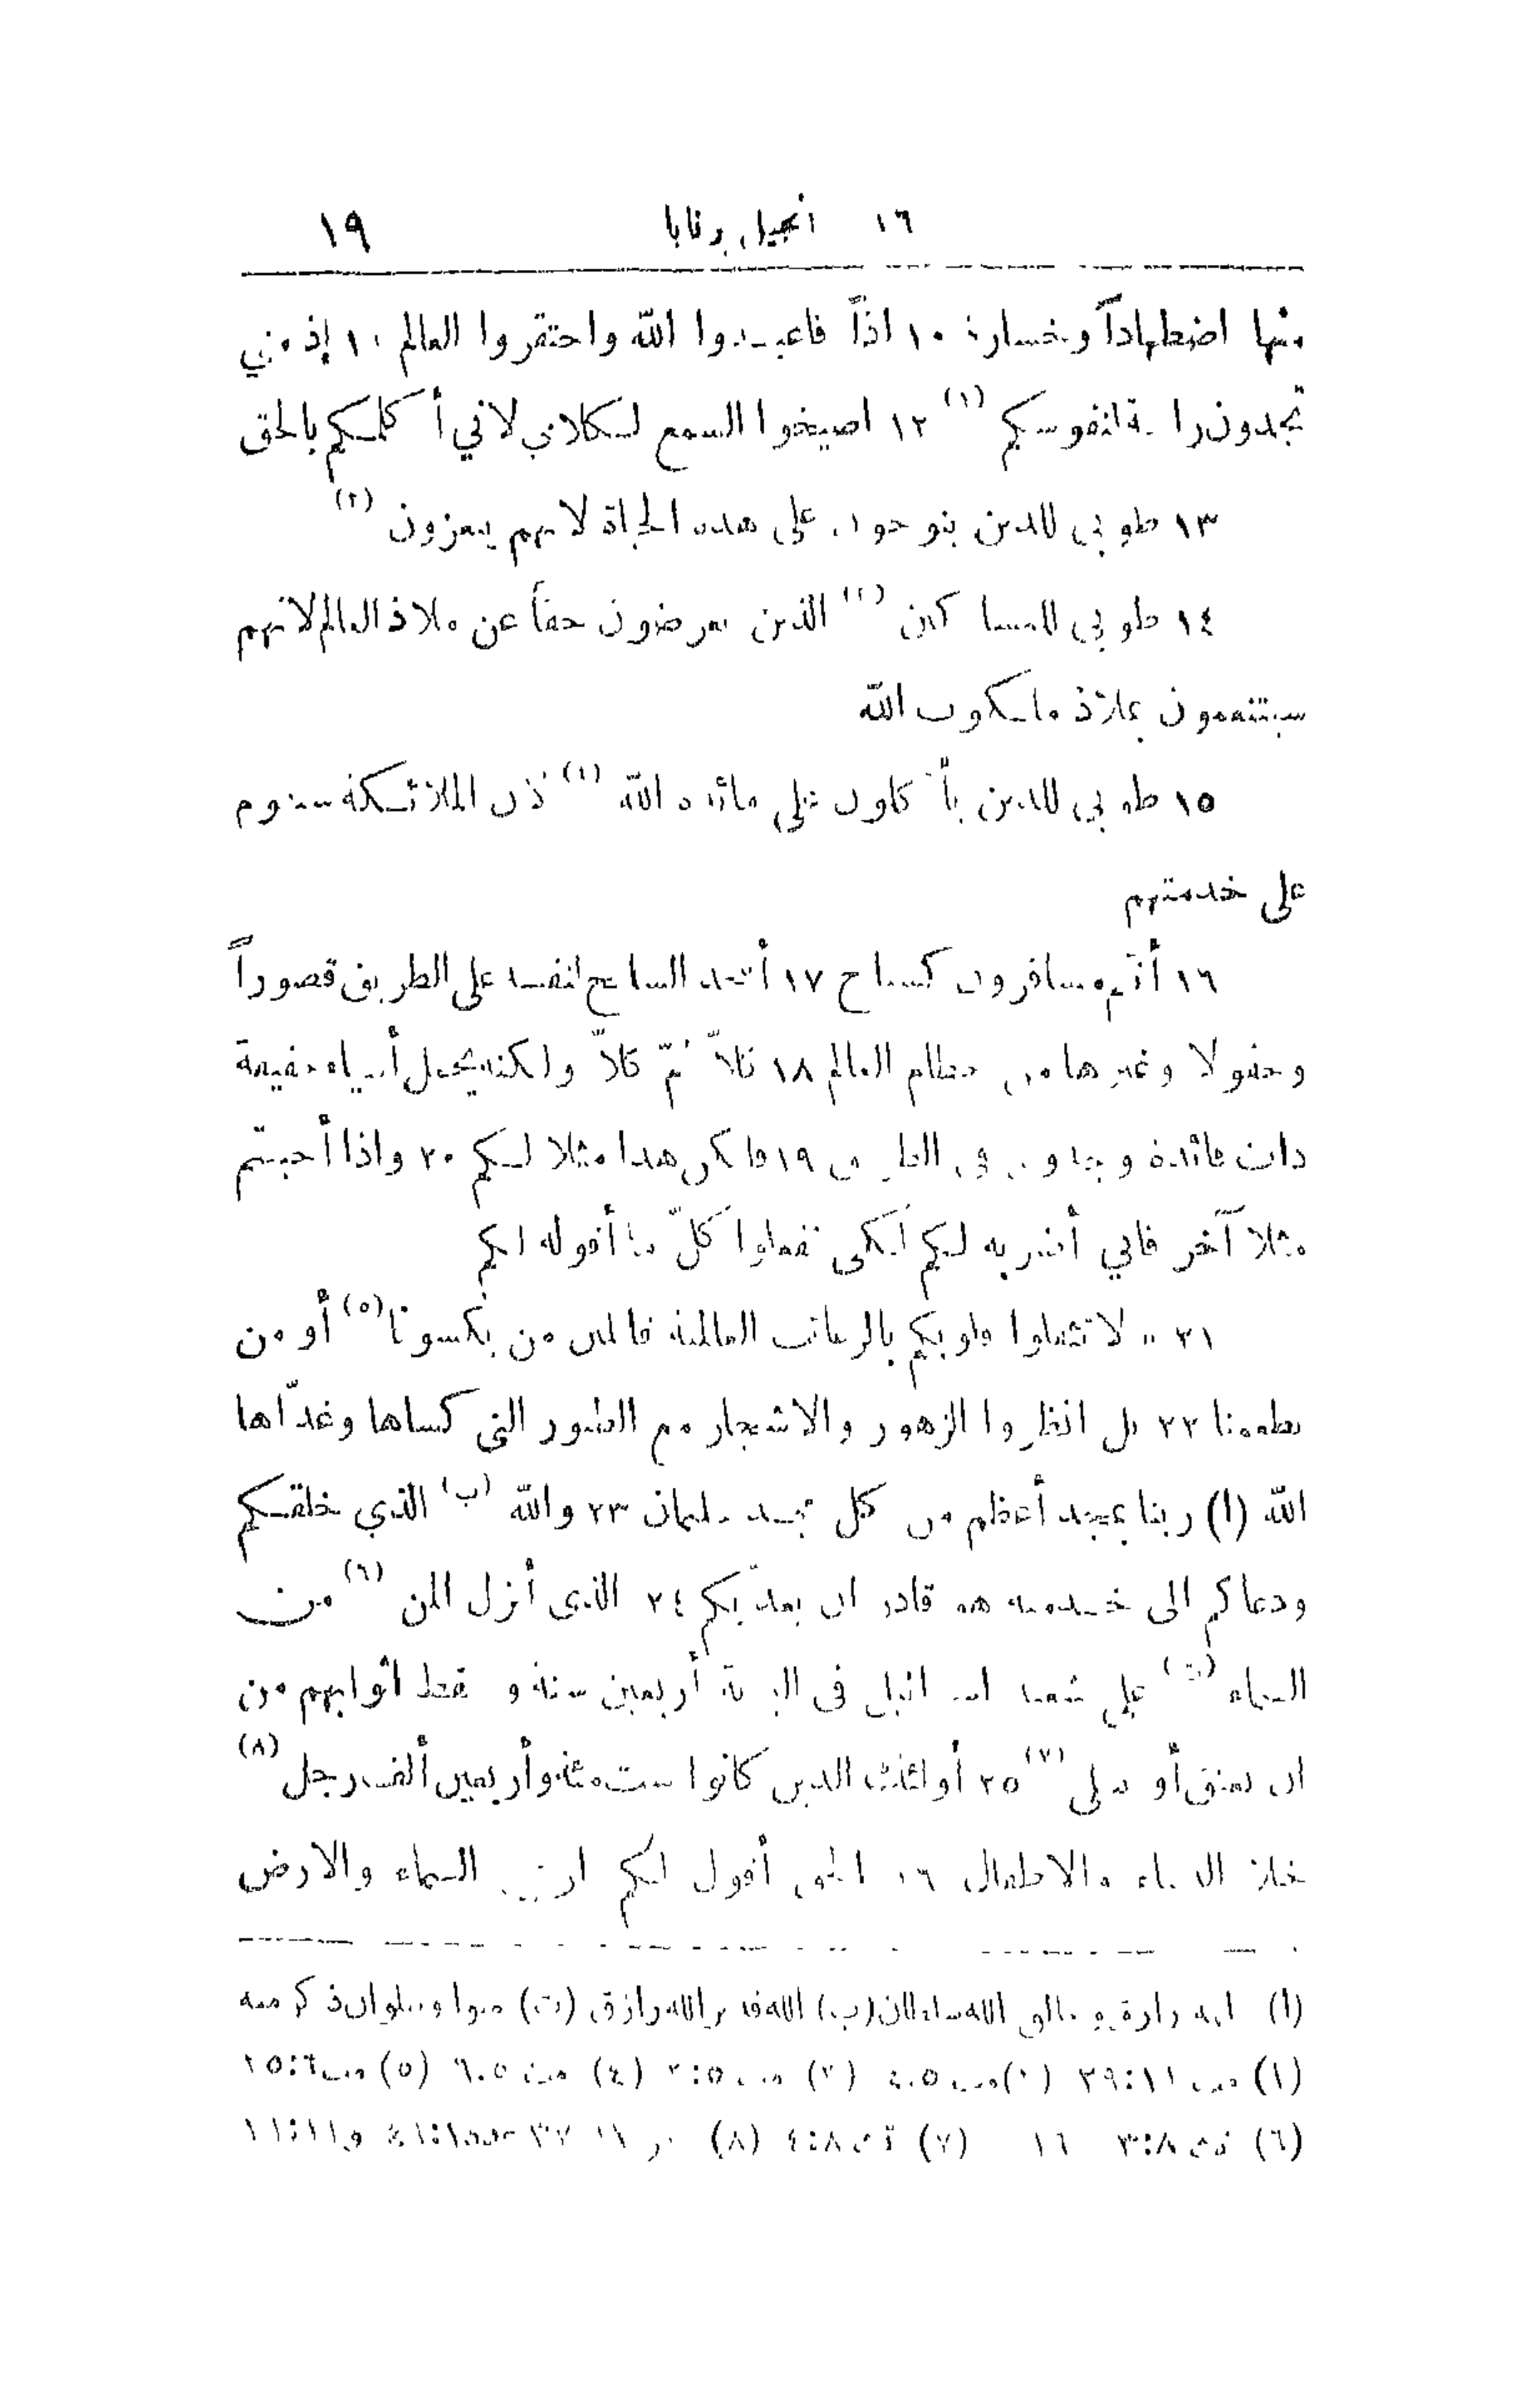 ١٦ انجيل برنابا ١٩
منها اضطهاداً وخسارة ١٠ اذاً فاعبدوا الله واحتقروا العالم ١١ إذ مني
تجدون راحة لنفوسكم (١) ١٢ اصيخوا السمع لكلامي لاني أكلمكم بالحق
١٣ طوبى للذين ينوحون على هذه الحياة لانهم يتعزون (٢)
١٤ طوبى للمساكين (٣) الذين يعرضون حقاً عن ملاذ العالم لانهم
سيتنعمون بملاذ ملكوت الله
١٥ طوبى للذين يأكلون على مائدة الله (٤) لأن الملائكة ستقوم
على خدمتهم
١٦ أنتم مسافرون كسياح ١٧ أيتخذ السائح لنفسه على الطريق قصوراً
وحقولا وغيرها من حطام العالم ١٨ كلاّ ثمّ كلاّ ولكنه يحمل أشياء خفيفة
ذات فائدة وجدوى في الطريق ١٩ فليكن هذا مثلا لكم ٢٠ واذا أحببتم
مثلا آخر فاني أضربه لكم لكي تفعلوا كلّ ما أقوله لكم
٢١ „ لا تثقلوا قلوبكم بالرغائب العالمية قائلين من يكسونا (٥) أو من
يطعمنا ٢٢ بل انظروا الزهور والاشجار مع الطيور التي كساها وغذّاها
الله (ا) ربنا بمجد أعظم من كل مجد سليمان ٢٣ والله (ب) الذي خلقكم
ودعاكم الى خدمته هو قادر ان يغذّيكم ٢٤ الذي أنزل المن (٦) من
السماء (ت) على شعبه اسرائيل في البرية أربعين سنة و تحفظ اثوابهم من
ان تعتق أو تبلى (٧) ٢٥ أولئك الذين كانوا ست مئة وأربعين ألف رجل (٨)
خلا النساء والاطفال ٢٦ الحق أقول لكم ان السماء والارض
(ا) الله سلطان (ب) الله قدير الله رازق (ت) ذكر منه
(١) مت ١١:٢٩ (٢) مت ٥:٤ (٣) مت ٥:٣ (٤) مت ٥:٦ (٥) مت ٦:٢٥
(٦) تث ٨:٣ ١٦ (٧) تث ٨:٤ (٨) ٣٧ ١:٤٦ و ١١:١١